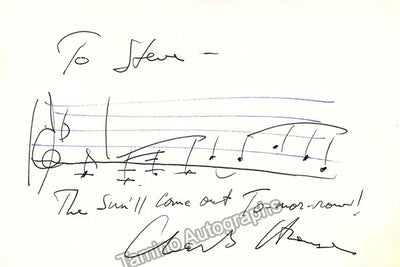 To Steve -
The sun'll come out To-mor-row!
Tamino Autographs
Charles Strouse